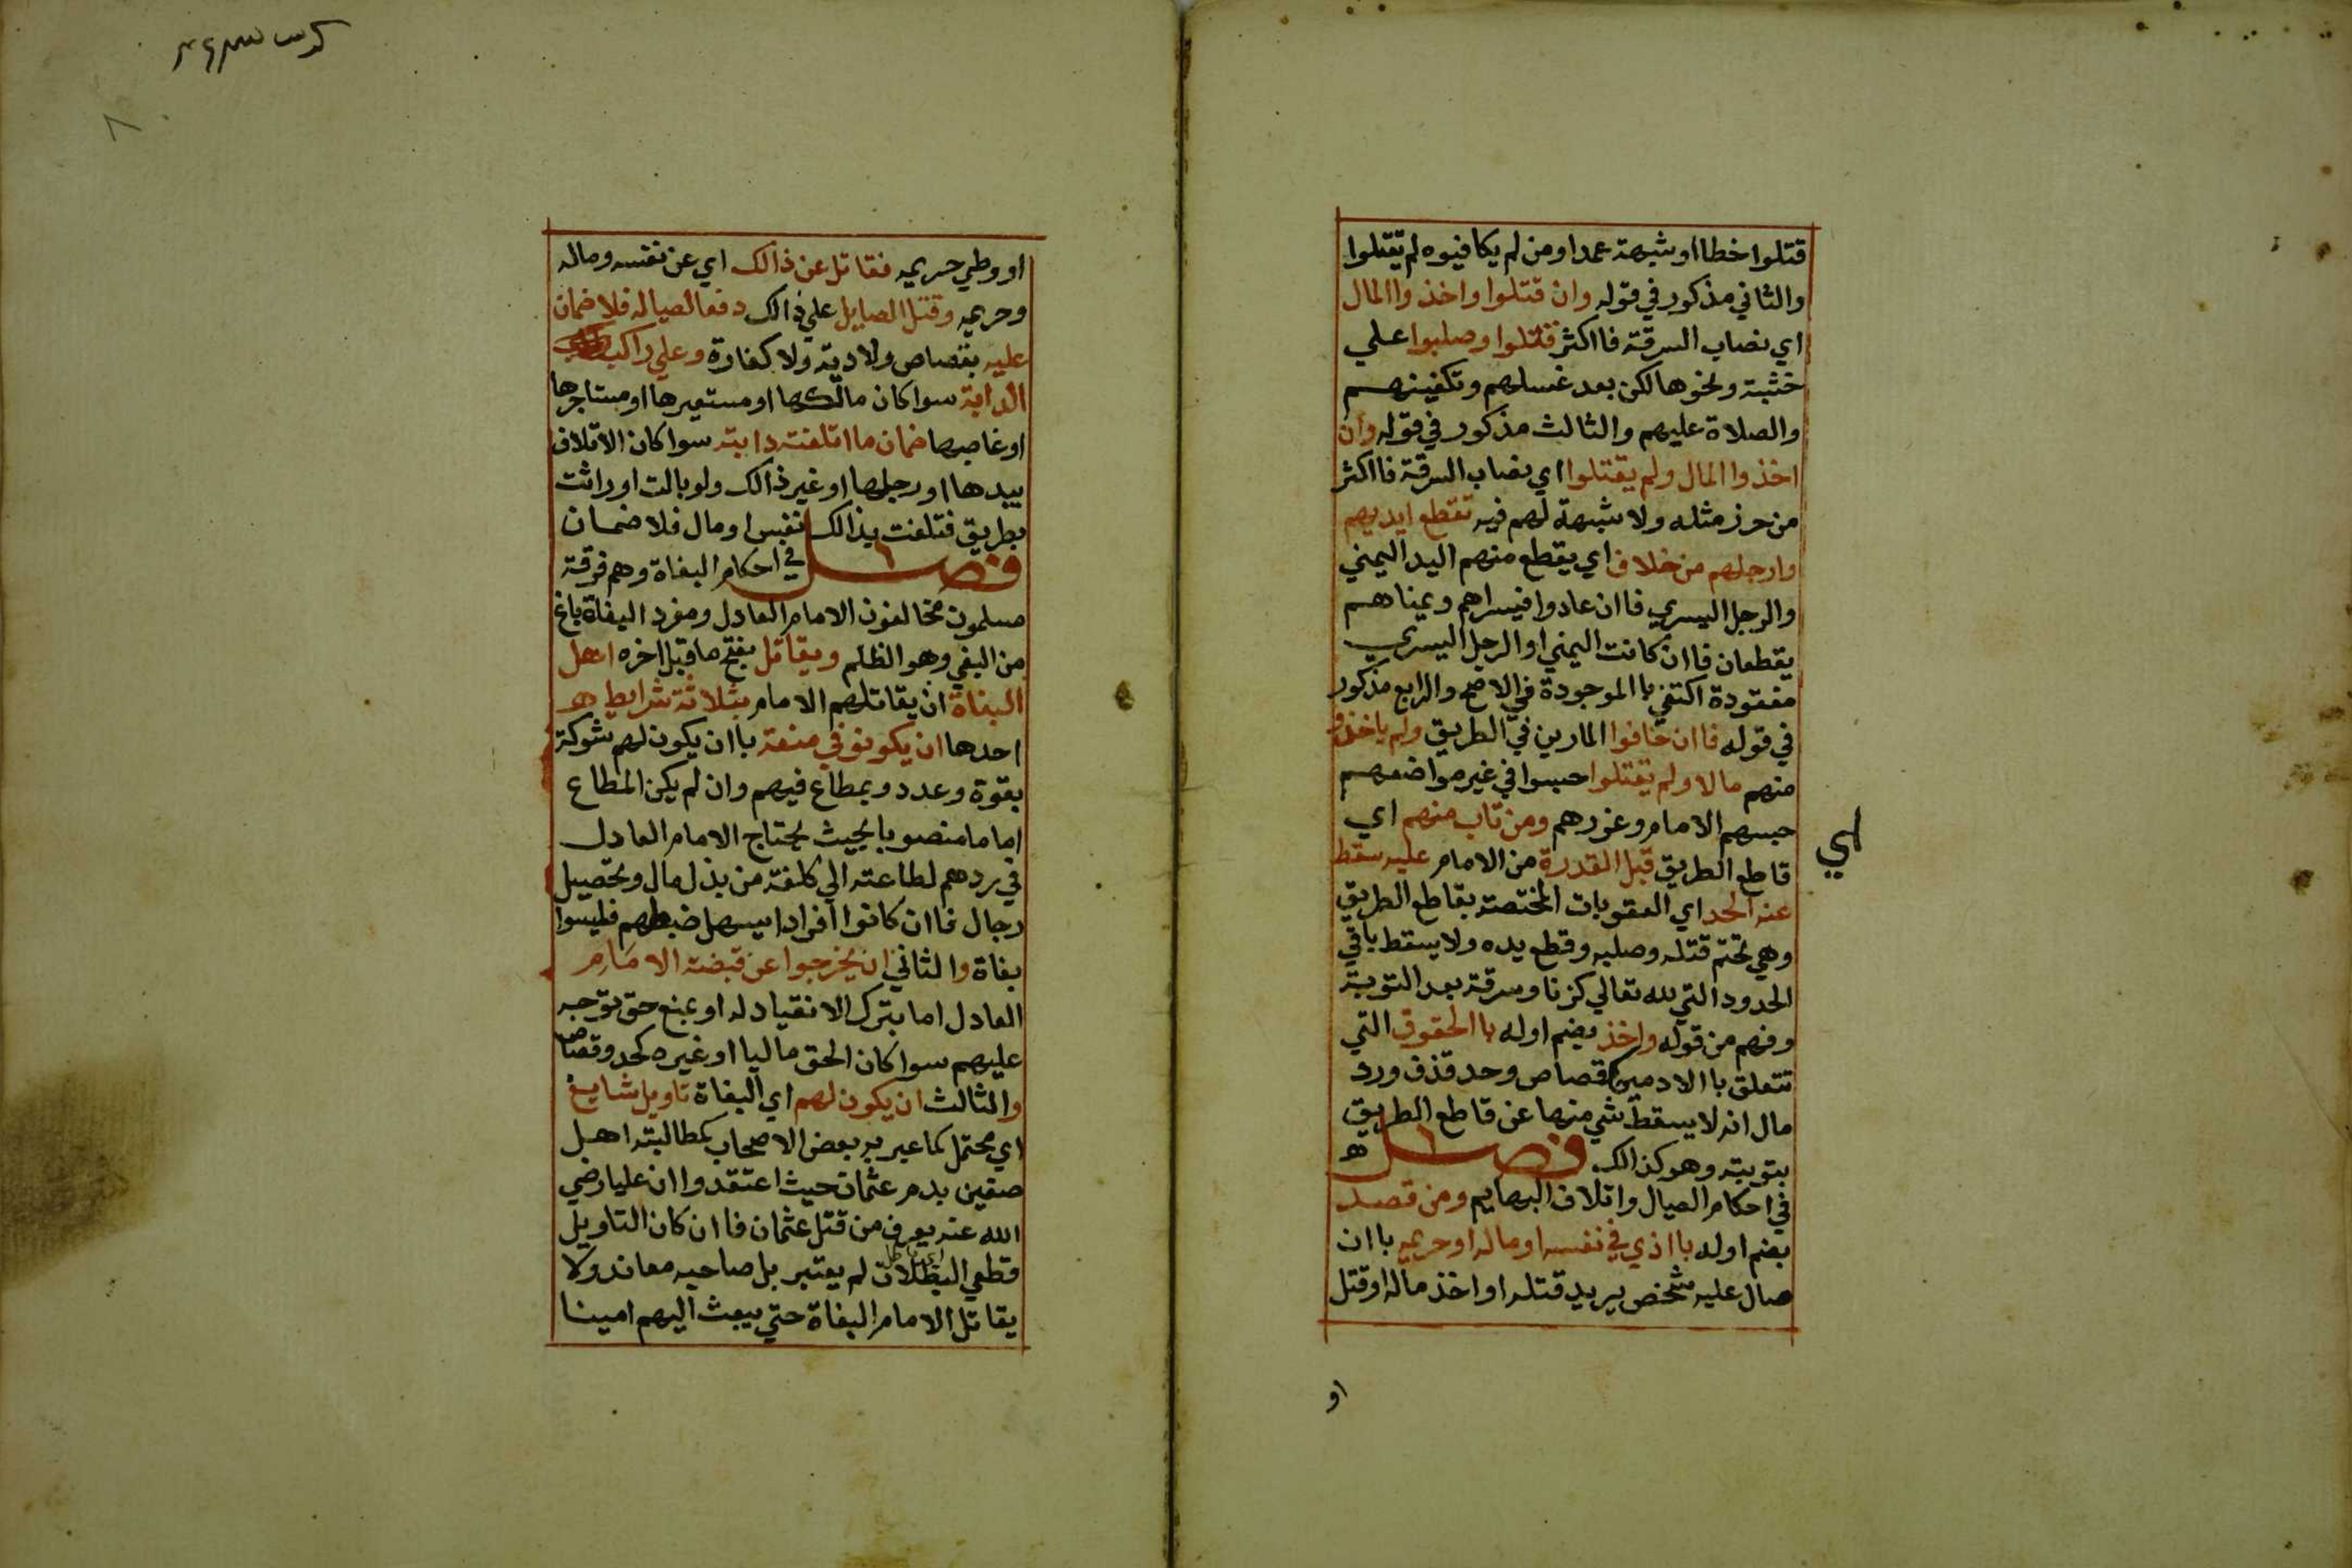 قتلوا خطا او شبهة عمد او من لم يكافيوه لم يقتلوا
والثاني مذكور في قوله وان قتلوا واخذوا المال
اي نصاب السرقة فااكثر قتلوا وصلبوا علي
خشبة ونحوها لكن بعد غسلهم وتكفينهم
والصلاة عليهم والثالث مذكور في قوله وان
اخذوا المال ولم يقتلوا اي نصاب السرقة فااكثر
من حرز مثله ولا شبهة لهم فيه تقطع ايديهم
وارجلهم من خلاف اي يقطع منهم اليد اليمني
والرجل اليسري فاان عادوا فيسراهم ويمناهم
يقطعان فاان كانت اليمني او الرجل اليسري
مفقودة اكتفي باالموجودة في الاصح والرابع مذكور
في قوله فاان خافوا المارين في الطريق ولم ياخذوا
منهم مالا ولم يقتلوا حبسوا في غير مواضعهم
حبسهم الامام وعزرهم ومن تاب منهم اي
اي
قاطع الطريق قبل القدرة من الامام عليه سقط
عنه الحد اي العقوبات المختصة بقاطع الطريق
وهي تحتم قتله وصلبه وقطع يده ولا يسقط باقي
الحدود التي لله تعالي كزنا وسرقة بعد التوبة
وفهم من قوله واخذ بضم اوله باالحقوق التي
تتعلق باالادميين كقصاص وحد قذف ورد
مال انه لا يسقط شي منها عن قاطع الطريق
بتوبته وهو كذالك فصل ه
في احكام الصيال واتلاف البهايم ومن قصد
بضم اوله بااذي في نفسه او ماله او حريمه باان
صال عليه شخص يريد قتله او اخذ ماله او قتل
او
او وطي حريمه فقاتل عن ذالك اي عن نفسه وماله
وحريمه وقتل الصايل علي ذالك دفعا لصياله فلا ضمان
عليه بقصاص ولا دية ولا كفارة وعلي راكب
الدابة سوا كان مالكها او مستعيرها او مستاجرها
او غاصبها ضمان ما اتلفته دابته سوا كان الاتلاف
بيدها او رجلها او غير ذالك ولو بالت او راثت
بطريق فتلفت بذالك نفس او مال فلا ضمان
فصل في احكام البغاة وهم فرقة
مسلمون مخالفون الامام العادل ومفرد البغاة باغ
من البغي وهو الظلم ويقاتل بفتح ما قبل اخره اهل
البغاة ان يقاتلهم الامام بثلاثة شرايط ه
احدها ان يكونو في منعة باان يكون لهم شوكة
بقوة وعدد وبمطاع فيهم وان لم يكن المطاع
اماما منصوبا بحيث يحتاج الامام العادل
في ردهم لطاعته الي كلفة من بذل مال وتحصيل
رجال فاان كانوا افرادا يسهل ضبطهم فليسوا
بغاة والثاني ان يخرجوا عن قبضة الامام
العادل اما بترك الانقياد له او بمنع حق توجه
عليهم سوا كان الحق ماليا او غيره كحد وقصاص
والثالث ان يكون لهم اي البغاة تاويل شايغ
اي محتمل كما عبر به بعض الاصحاب كمطالبة اهل
صفين بدم عثمان حيث اعتقدوا ان عليا رضي
الله عنه يعرف من قتل عثمان فاان كان التاويل
قطعي البطلان لم يعتبر بل صاحبه معاند ولا
يقاتل الامام البغاة حتي يبعث اليهم امينا